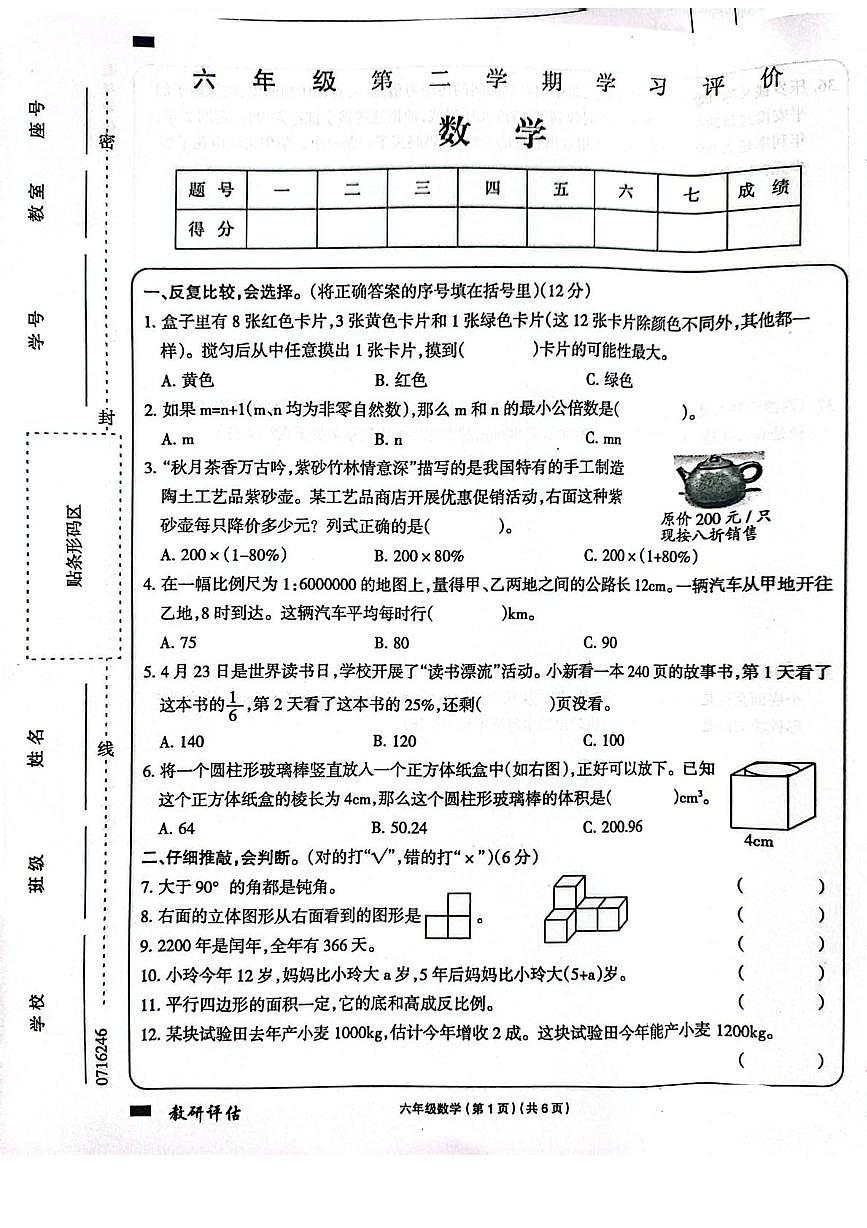 六年级第二学期学习评价
数学
题号 一 二 三 四 五 六 七 成绩
得分
一、反复比较,会选择。(将正确答案的序号填在括号里)(12分)
1. 盒子里有8张红色卡片,3张黄色卡片和1张绿色卡片(这12张卡片除颜色不同外,其他都一
样)。搅匀后从中任意摸出1张卡片,摸到( )卡片的可能性最大。
A. 黄色 B. 红色 C. 绿色
2. 如果m=n+1(m、n均为非零自然数),那么m和n的最小公倍数是( )。
A. m B. n C. mn
3. “秋月茶香万古吟,紫砂竹林情意深”描写的是我国特有的手工制造
陶土工艺品紫砂壶。某工艺品商店开展优惠促销活动,右面这种紫
砂壶每只降价多少元?列式正确的是( )。
原价200元/只
现按八折销售
A. 200×(1-80%) B. 200×80% C. 200×(1+80%)
4. 在一幅比例尺为1:6000000的地图上,量得甲、乙两地之间的公路长12cm。一辆汽车从甲地开往
乙地,8时到达。这辆汽车平均每时行( )km。
A. 75 B. 80 C. 90
5. 4月23日是世界读书日,学校开展了“读书漂流”活动。小新看一本240页的故事书,第1天看了
这本书的1/6,第2天看了这本书的25%,还剩( )页没看。
A. 140 B. 120 C. 100
6. 将一个圆柱形玻璃棒竖直放入一个正方体纸盒中(如右图),正好可以放下。已知
这个正方体纸盒的棱长为4cm,那么这个圆柱形玻璃棒的体积是( )cm³。
A. 64 B. 50.24 C. 200.96
4cm
二、仔细推敲,会判断。(对的打“√”,错的打“×”)(6分)
7. 大于90°的角都是钝角。 ( )
8. 右面的立体图形从右面看到的图形是 。 ( )
9. 2200年是闰年,全年有366天。 ( )
10. 小玲今年12岁,妈妈比小玲大a岁,5年后妈妈比小玲大(5+a)岁。 ( )
11. 平行四边形的面积一定,它的底和高成反比例。 ( )
12. 某块试验田去年产小麦1000kg,估计今年增收2成。这块试验田今年能产小麦1200kg。
( )
教研评估
六年级数学(第1页)(共6页)
座号
教室
学号
贴条形码区
姓名
班级
学校
密
封
线
0716246